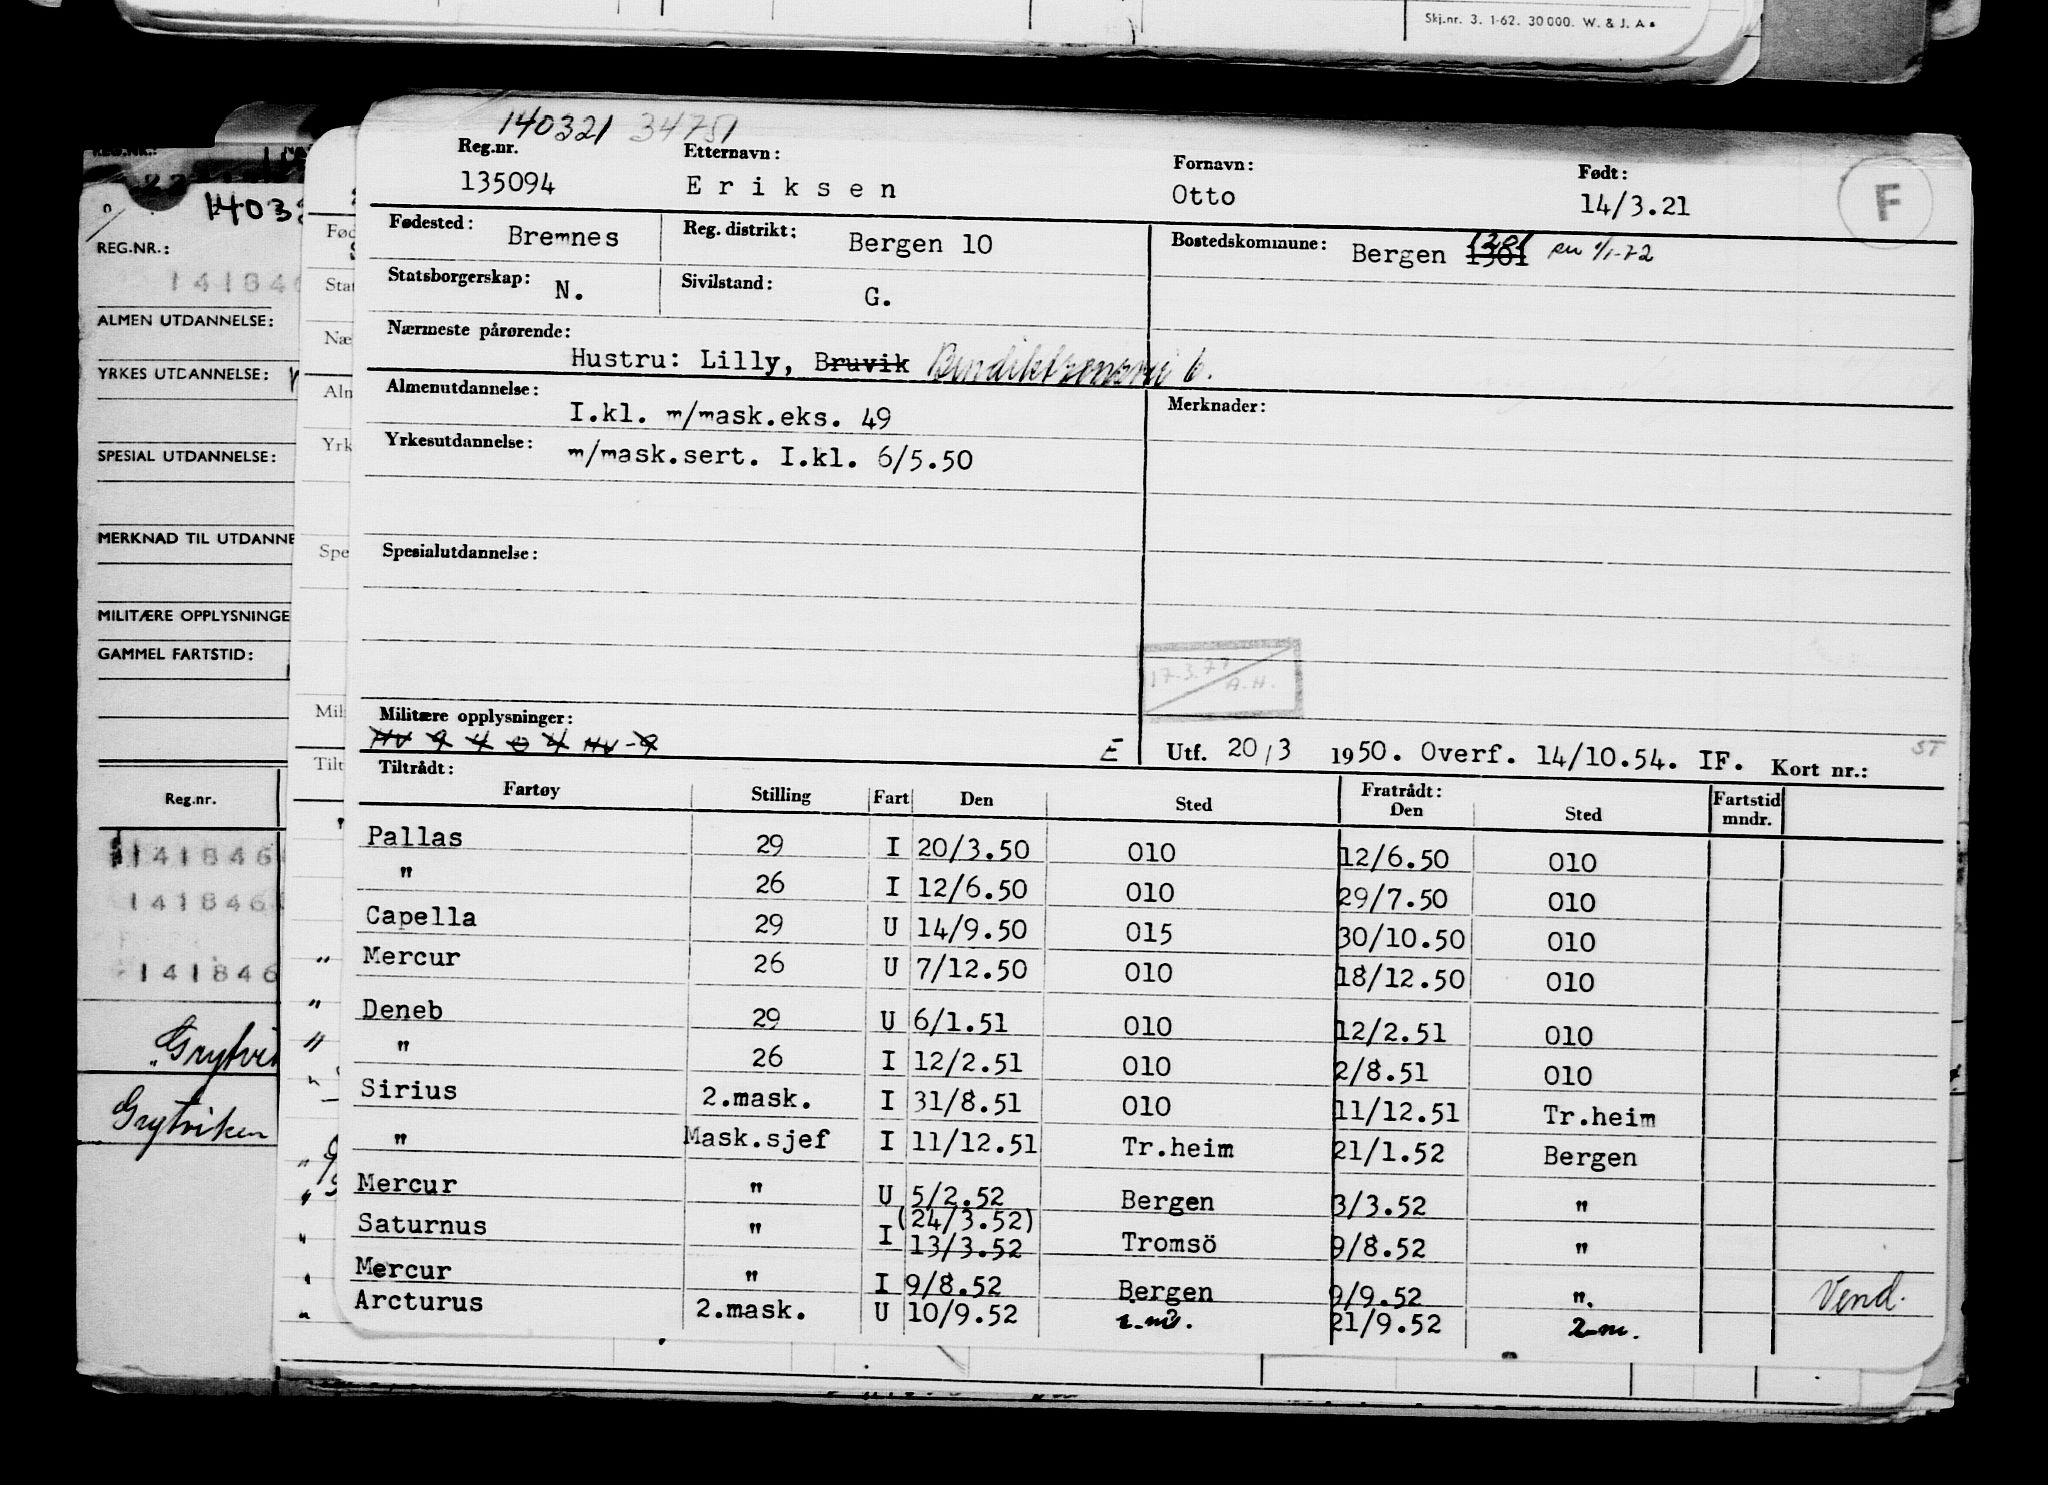 Skj.nr. 3. 1-62. 30 000. W. & J. A s
140321 34751
Reg.nr. Etternavn: Fornavn: Født:
135094 Eriksen Otto 14/3.21 F
Fødested: Bremnes Reg. distrikt: Bergen 10 Bostedskommune: Bergen 1301 1/1-72
Statsborgerskap: N. Sivilstand: G.
Nærmeste pårørende:
Hustru: Lilly, Bruvik
Almenutdannelse: Merknader:
I.kl. m/mask.eks. 49
Yrkesutdannelse: m/mask.sert. I.kl. 6/5.50
Spesialutdannelse:
17.3.77 A.H.
Militære opplysninger:
HV 9 4 0 4 HV-9 E Utf. 20/3 1950. Overf. 14/10.54. IF. Kort nr.: ST
Tiltrådt: Fratrådt:
Fartøy Stilling Fart Den Sted Den Sted Fartstid mndr.
Pallas 29 I 20/3.50 010 12/6.50 010
" 26 I 12/6.50 010 29/7.50 010
Capella 29 U 14/9.50 015 30/10.50 010
Mercur 26 U 7/12.50 010 18/12.50 010
Deneb 29 U 6/1.51 010 12/2.51 010
" 26 I 12/2.51 010 2/8.51 010
Sirius 2.mask. I 31/8.51 010 11/12.51 Tr.heim
" Mask.sjef I 11/12.51 Tr.heim 21/1.52 Bergen
Mercur " U 5/2.52 Bergen 3/3.52 "
Saturnus " I (24/3.52) 13/3.52 Tromsö 9/8.52 "
Mercur " I 9/8.52 Bergen 9/9.52 ".
Arcturus 2.mask. U 10/9.52 21/9.52
Vend.
REG.NR.:
14184
ALMEN UTDANNELSE:
YRKES UTDANNELSE:
SPESIAL UTDANNELSE:
MERKNAD TIL UTDANNE
MILITÆRE OPPLYSNINGE
GAMMEL FARTSTID:
Reg.nr.
141846
141846
141846
Grytvi
Grytviken